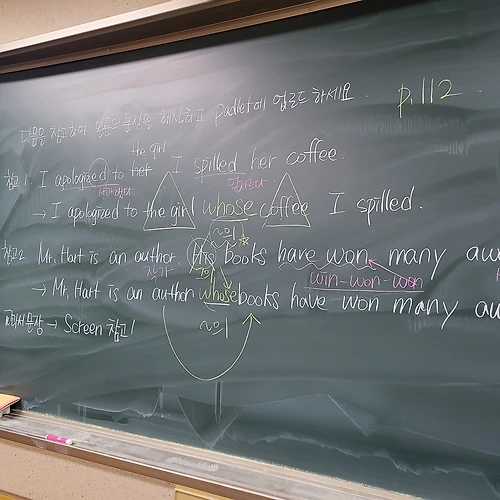 다음을 참고하여 본문의 문장을 해석하고 padlet에 업로드 하세요. p.112
the girl
참고1. I apologized to her I spilled her coffee.
사과했다 엎지르다
→ I apologized to the girl whose coffee I spilled.
~의
참고2. Mr. Hart is an author. His books have won many aw
작가 의 win-won-won
→ Mr. Hart is an author whose books have won many aw
~의
교과서문장 → Screen 참고!